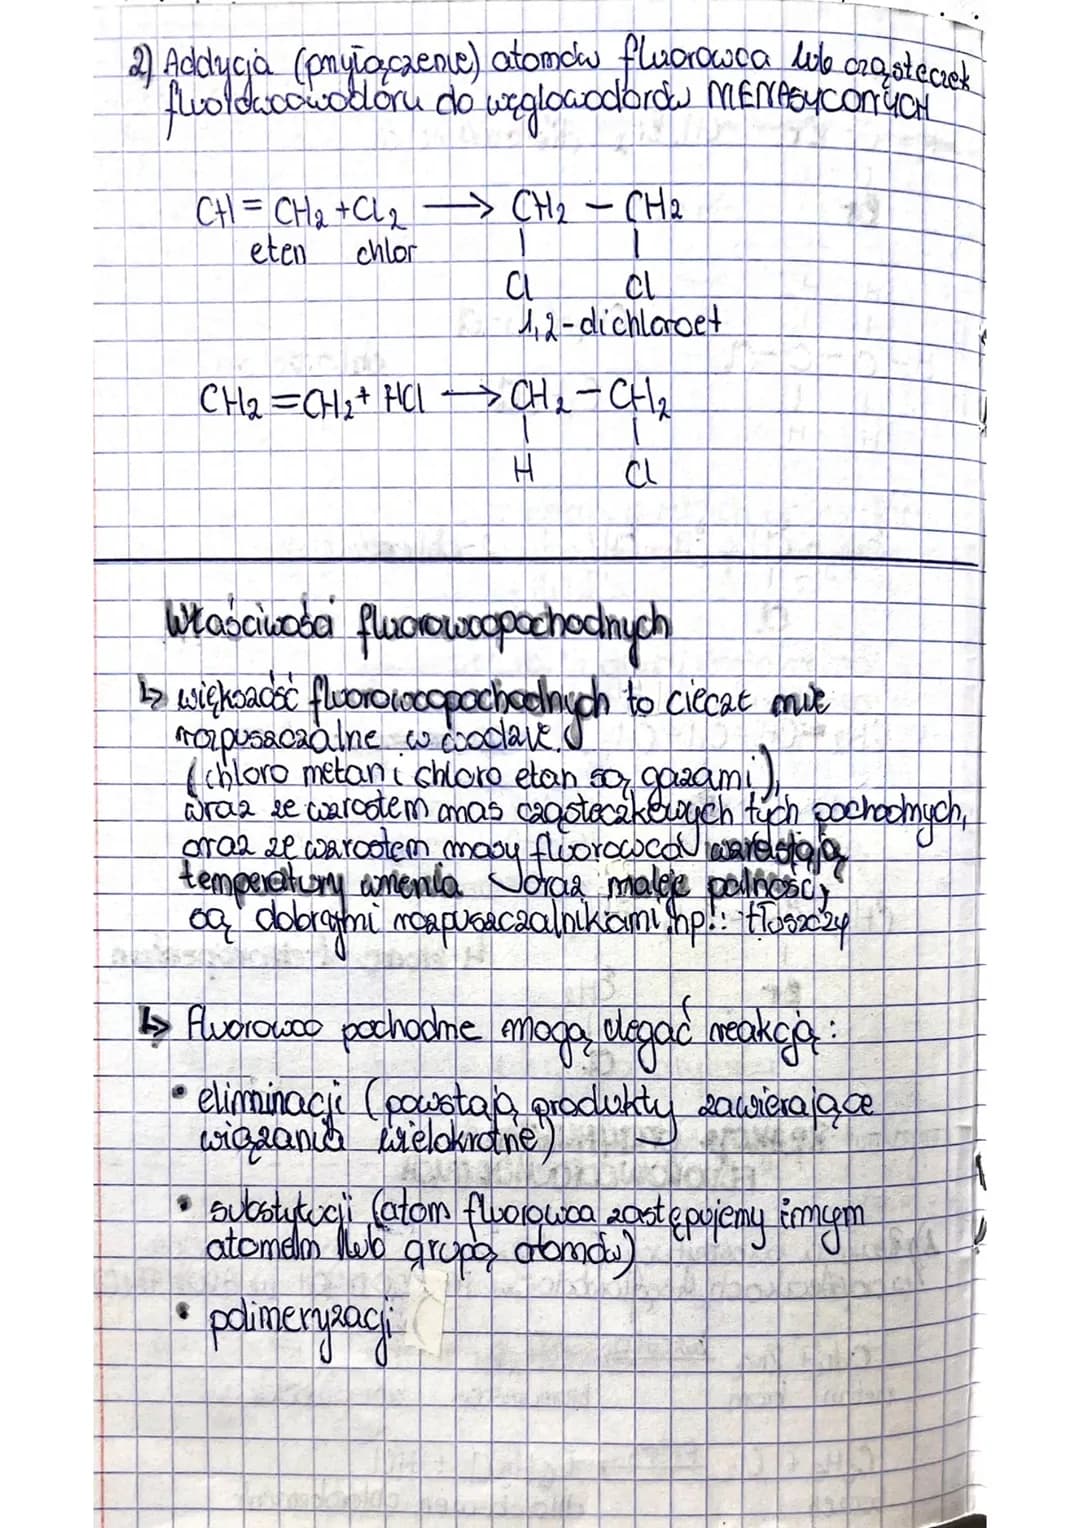 2) Addycja (przyłączenie) atomów fluorowca lub cząsteczek
fluorowcowodoru do węglowodorów NIENASYCONYCH
CH = CH2 + Cl2 → CH2 – CH2
eten chlor | |
Cl Cl
1,2-dichloroet
CH2 = CH2 + HCl → CH2 – CH2
| |
H Cl
Właściwości fluorowcopochodnych
↳ większość fluorowcopochodnych to ciecze nie
rozpuszczalne w wodzie.
(chloro metan i chloro etan są gazami),
wraz ze wzrostem mas cząsteczkowych tych pochodnych,
oraz ze wzrostem masy fluorowców wzrastają
temperatury wrzenia oraz maleje palność,
są dobrymi rozpuszczalnikami np.: tłuszczy
↳ fluorowco pochodne mogą ulegać reakcją:
• eliminacji (powstają produkty zawierające
wiązania wielokrotne)
• substytucji (atom fluorowca zastępujemy innym
atomem lub grupą atomów)
• polimeryzacji